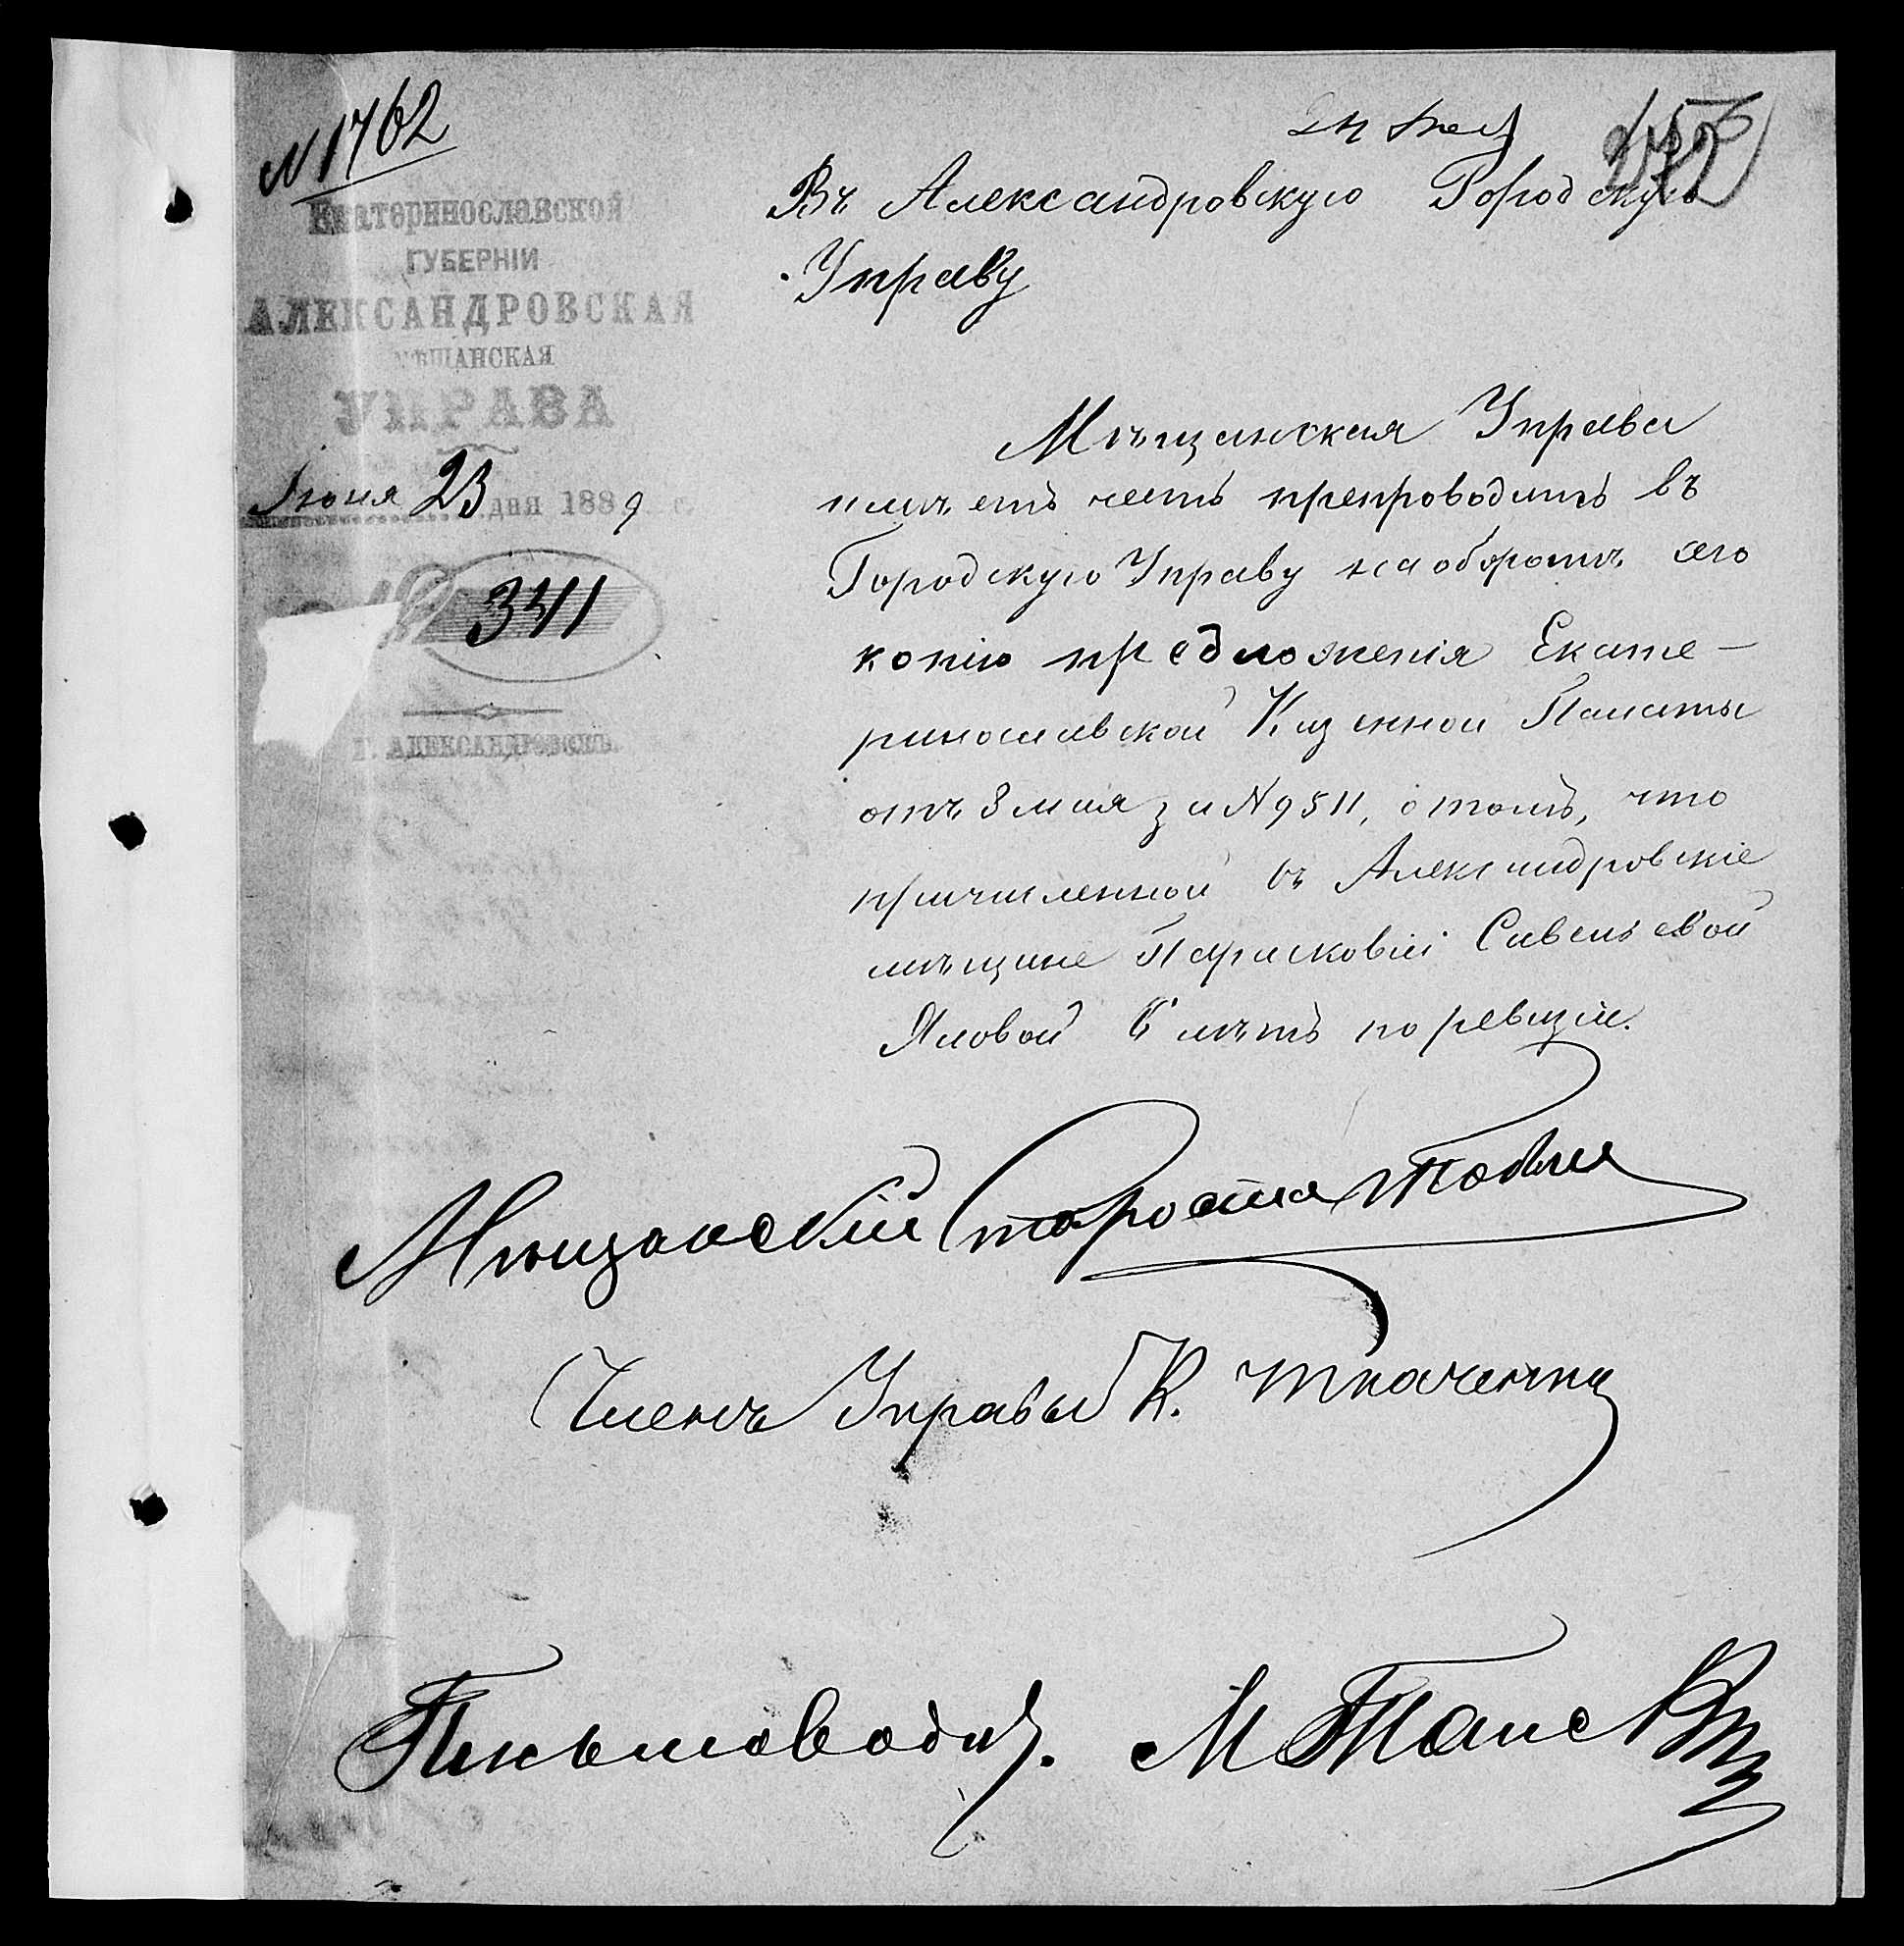 № 1762
Екатеринославской
ГУБЕРНІИ
АЛЕКСАНДРОВСКАЯ
МѢЩАНСКАЯ
УПРАВА
Іюня 23 дня 1889 г.
№ 341
Г. АЛЕКСАНДРОВСКЪ.
Въ Александровскую Городскую
Управу
Мѣщанская Управа
имѣетъ честь препроводить въ
Городскую Управу на оборотѣ сего
копію предложенія Екате-
ринославской Казенной Палаты
отъ 8 мая за № 9511, о томъ, что
причисленной въ Александровскіе
мѣщане Парасковіи Савельевой
Яловой 6 лѣтъ по ревизіи.
Мѣщанскій Староста
Членъ Управы К. Ткаченко
Письмоводит. М